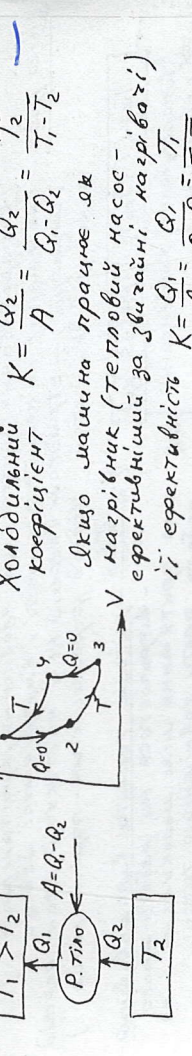 T₁ > T₂
Q₁
Р. тіло
A = Q₁ - Q₂
Q₂
T₂
T
4
Q=0
Q=0
2
3
T
V
Холодильний
коефіцієнт
K = Q₂/A = Q₂/(Q₁-Q₂) = T₂/(T₁-T₂)
Якщо машина працює як
нагрівник (тепловий насос -
ефективніший за звичайні нагрівачі)
її ефективність K = Q₁/A = Q₁ = T₁